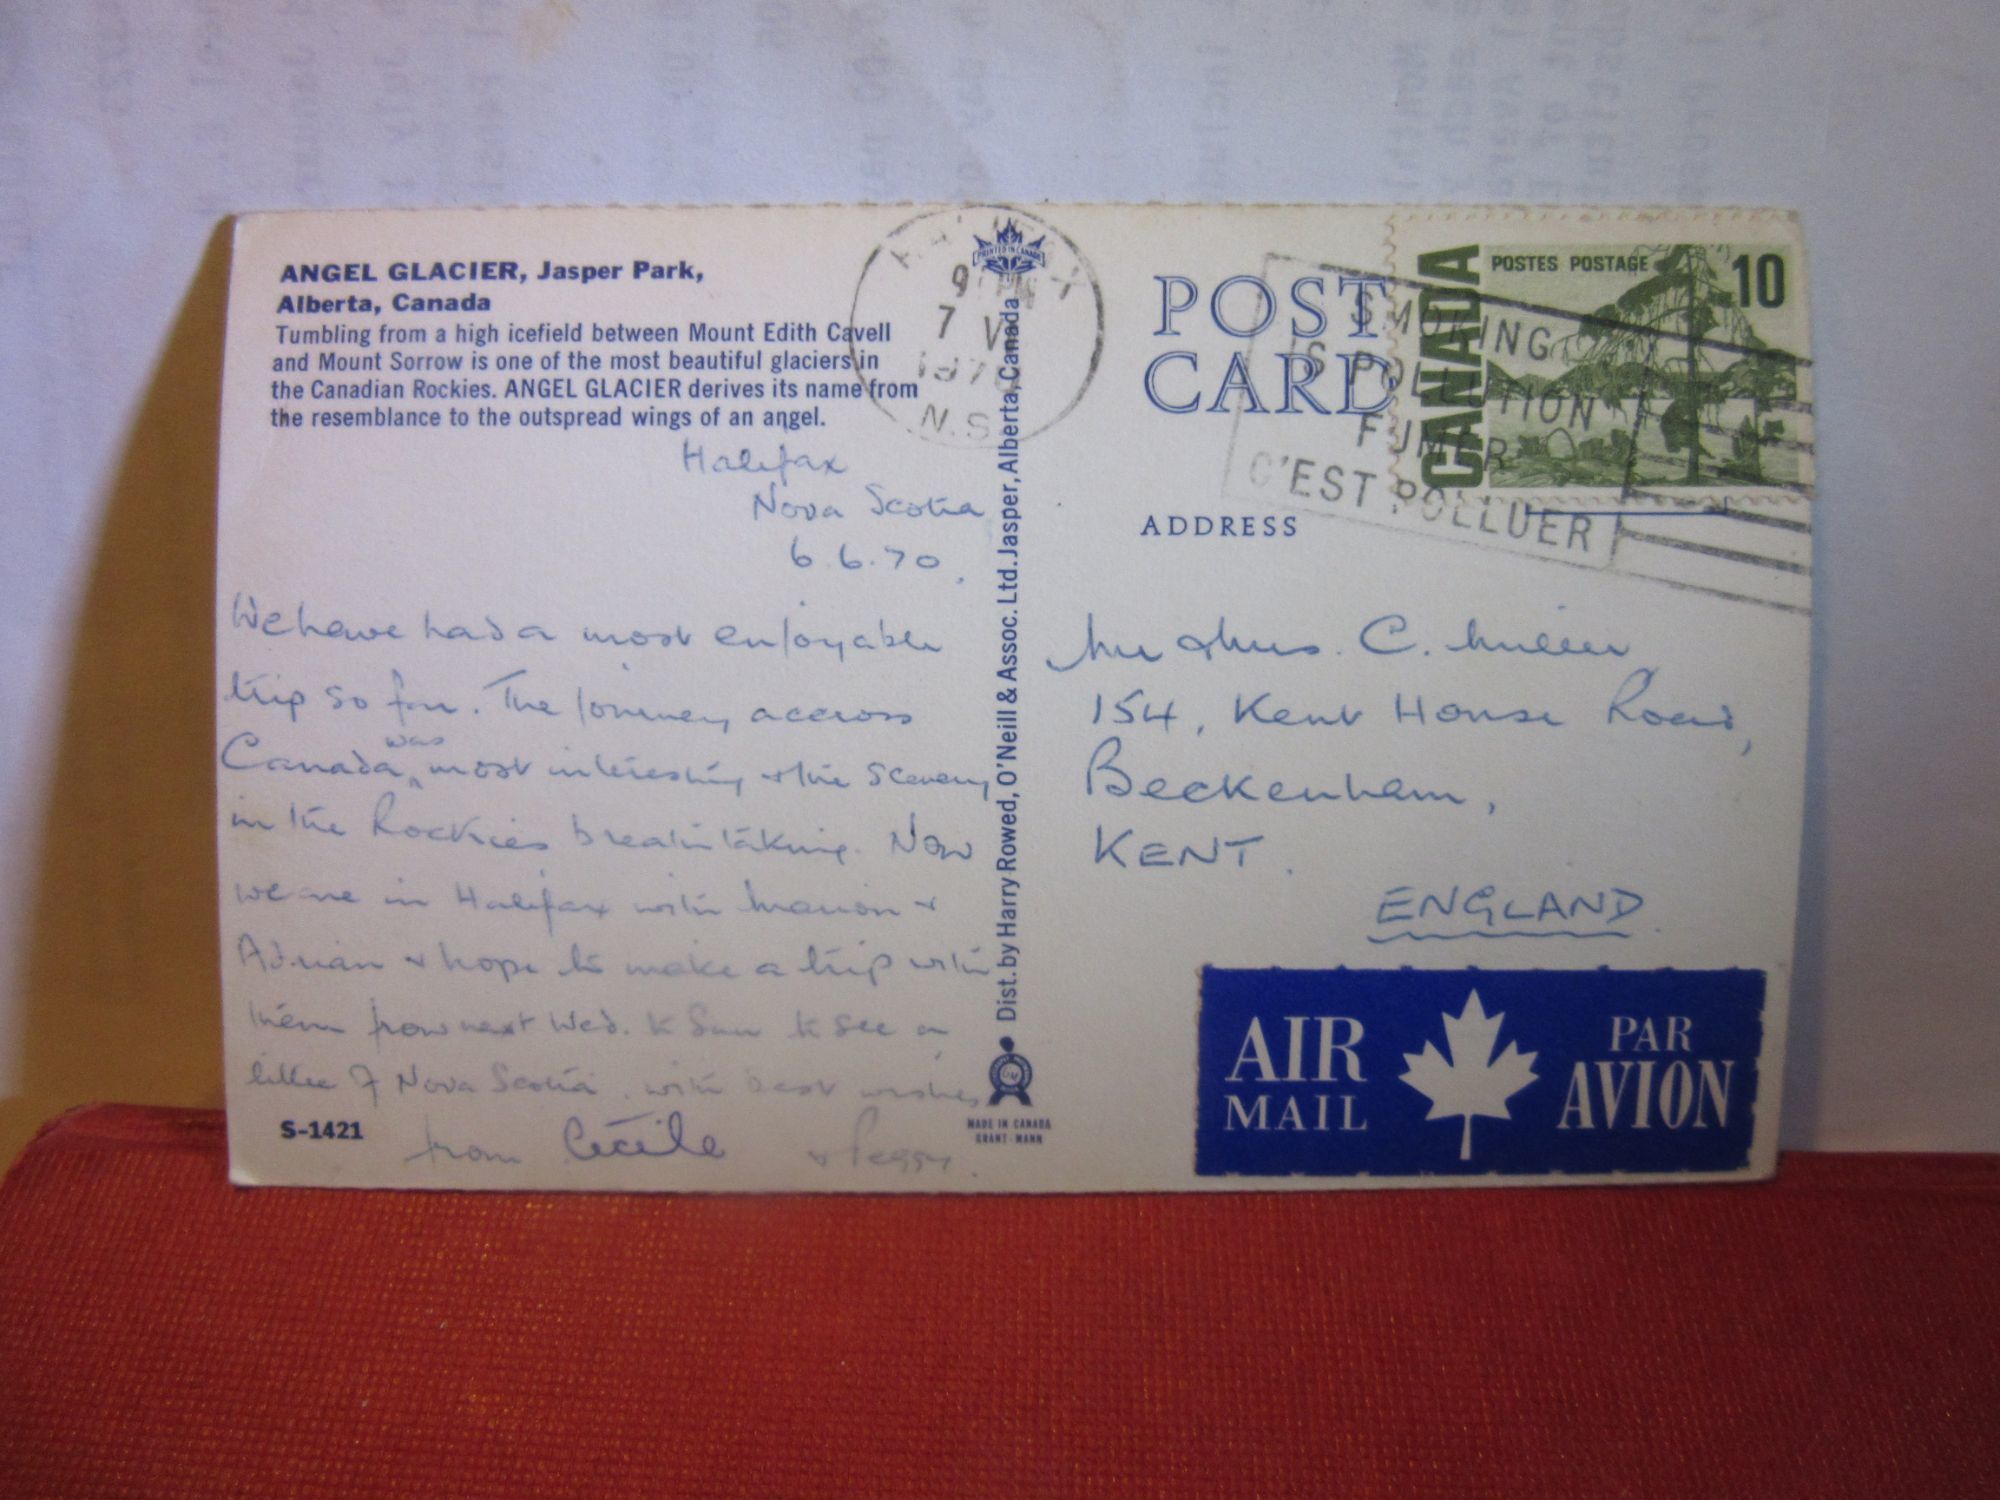 ANGEL GLACIER, Jasper Park,
Alberta, Canada
Tumbling from a high icefield between Mount Edith Cavell
and Mount Sorrow is one of the most beautiful glaciers in
the Canadian Rockies. ANGEL GLACIER derives its name from
the resemblance to the outspread wings of an angel.
Halifax
Nova Scotia
6.6.70.
We have had a most enjoyable
trip so far. The journey accross
Canada was most interesting & the scenery
in the Rockies breathtaking. Now
we are in Halifax with Marion &
Adrian & hope to make a trip with
them from next Wed. to Sun to see a
little of Nova Scotia. with best wishes
from Cecile & Peggy.
S-1421
PRINTED IN CANADA
Dist. by Harry Rowed, O'Neill & Assoc. Ltd. Jasper, Alberta, Canada
MADE IN CANADA
GRANT-MANN
9 PM
7 VI
1970
N.S.
POST
CARD
ADDRESS
CANADA
POSTES POSTAGE
10
SMOKING
IS POLLUTION
FUMER
C'EST POLLUER
Mr & Mrs. C. Miller
154, Kent House Road,
Beckenham,
KENT.
ENGLAND.
AIR MAIL
PAR AVION